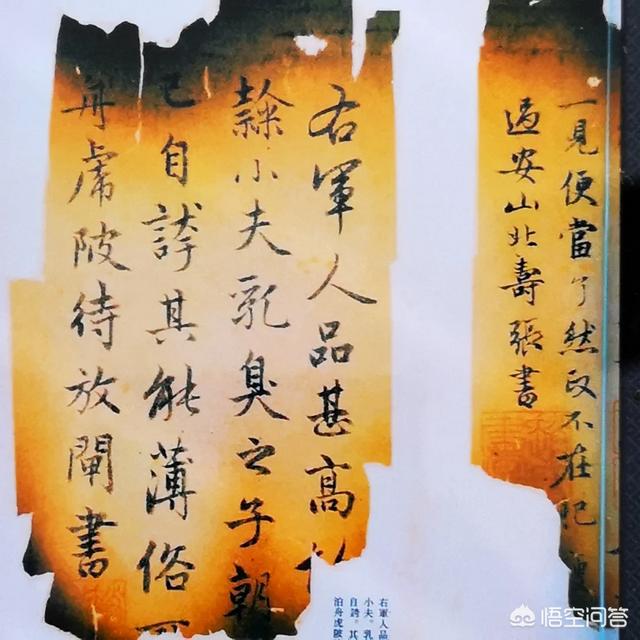 一見便當了然政不在肥
過安山北壽張書
右軍人品甚高
隸小夫乳臭之子朝
已自誇其能薄俗可
舟虎陂待放閘書
右軍人品
小夫。乳
自誇。其
泊舟虎陂
悟空问答